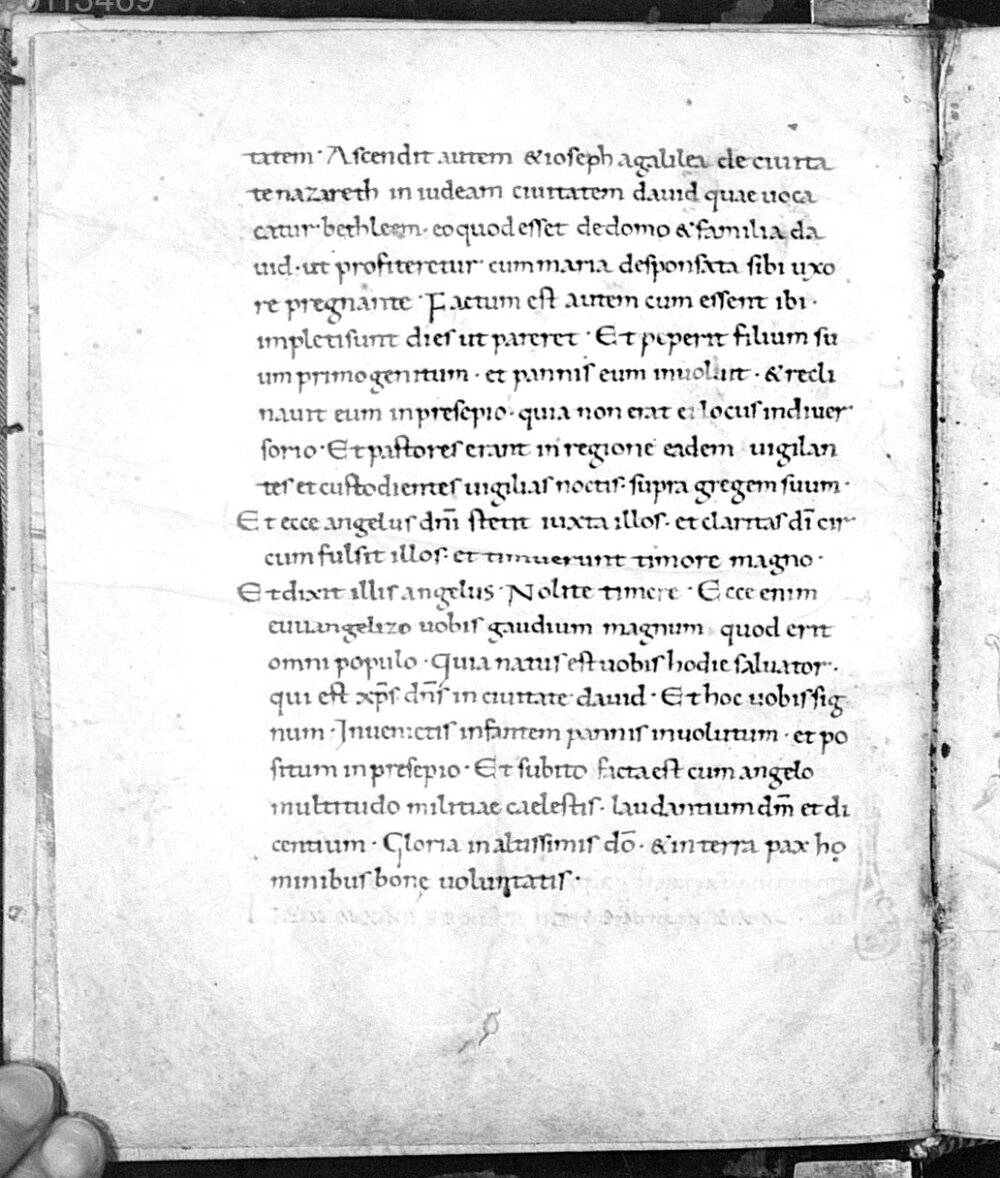 tatem· Ascendit autem & ioseph a galilea de ciuita
te nazareth in iudeam ciuitatem dauid quae uoca
catur bethleem· eo quod esset de domo & familia da
uid· ut profiteretur cum maria desponsata sibi uxo
re pregnante· Factum est autem cum essent ibi·
impleti sunt dies ut pareret· Et peperit filium su
um primogenitum· et pannis eum inuoluit· & recli
nauit eum in presepio· quia non erat ei locus in diuer
sorio· Et pastores erant in regione eadem uigilan
tes et custodientes uigilias noctis· supra gregem suum·
Et ecce angelus dnī stetit iuxta illos· et claritas dī cir
cum fulsit illos· et timuerunt timore magno·
Et dixit illis angelus· Nolite timere· Ecce enim
euuangelizo uobis gaudium magnum quod erit
omni populo· Quia natus est uobis hodie saluator·
qui est xp̄s dn̄s in ciuitate dauid· Et hoc uobis sig
num· Inuenietis infantem pannis inuolutum· et po
situm in presepio· Et subito facta est cum angelo
multitudo militiae caelestis· laudantium dm̄ et di
centium· Gloria in altissimis dō· & in terra pax ho
minibus bonę uoluntatis·